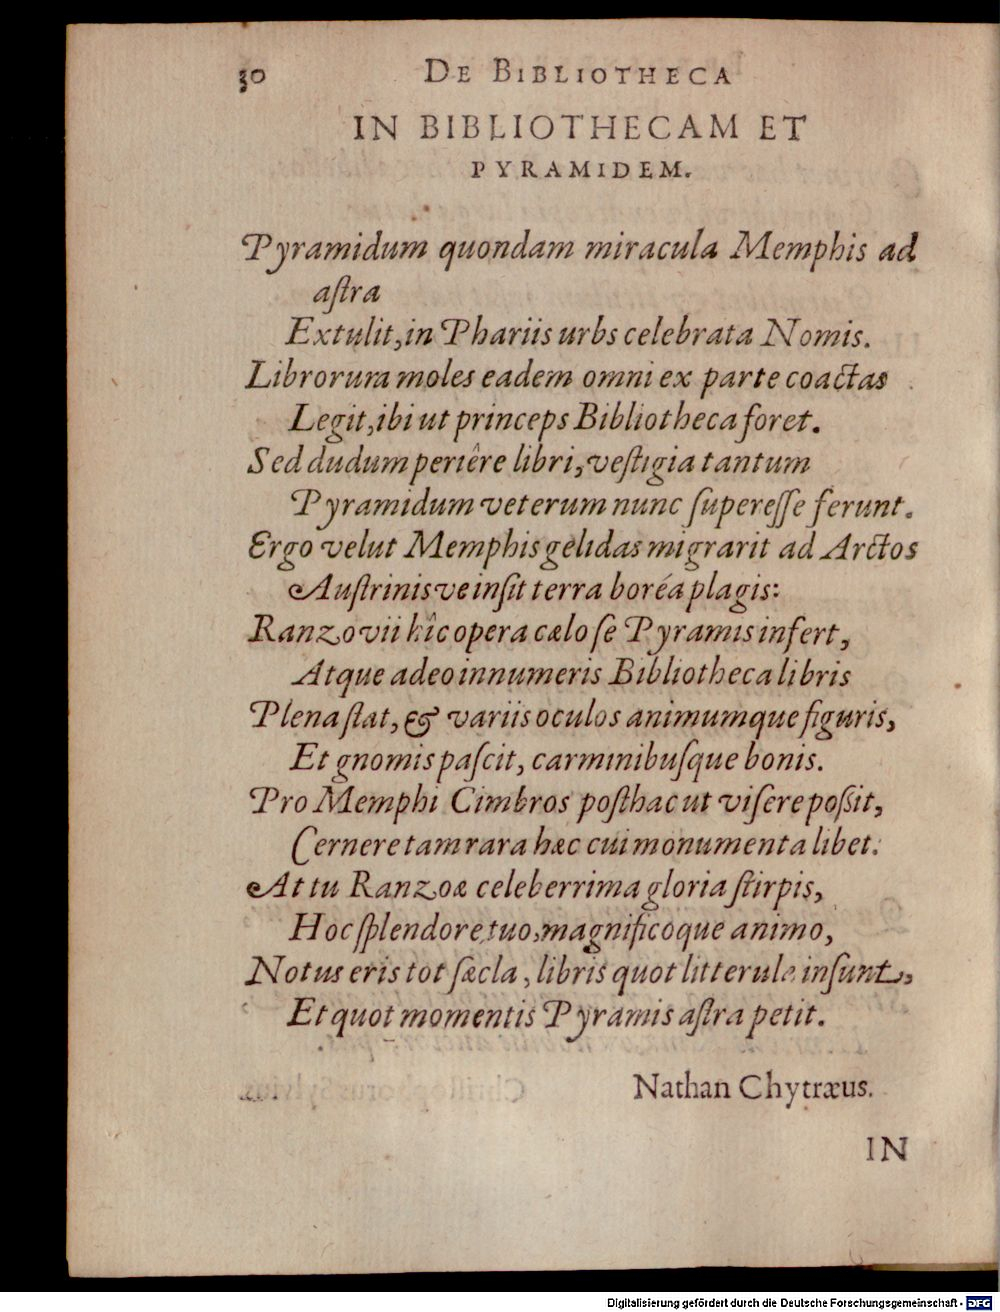 30 DE BIBLIOTHECA
IN BIBLIOTHECAM ET
PYRAMIDEM.
Pyramidum quondam miracula Memphis ad
aſtra
Extulit, in Phariis urbs celebrata Nomis.
Librorum moles eadem omni ex parte coactas
Legit, ibi ut princeps Bibliotheca foret.
Sed dudum periêre libri, veſtigia tantum
Pyramidum veterum nunc ſupereſſe ferunt.
Ergo velut Memphis gelidas migrarit ad Arctos
Auſtrinisve inſit terra boréa plagis:
Ranzovii hîc opera cælo ſe Pyramis infert,
Atque adeo innumeris Bibliotheca libris
Plena ſtat, & variis oculos animumque figuris,
Et gnomis paſcit, carminibuſque bonis.
Pro Memphi Cimbros poſthac ut viſere poßit,
Cernere tam rara hæc cui monumenta libet.
At tu Ranzoæ celeberrima gloria ſtirpis,
Hoc ſplendore tuo, magnificoque animo,
Notus eris tot ſæcla, libris quot litterulæ inſunt,
Et quot momentis Pyramis aſtra petit.
Nathan Chytræus.
IN
Digitalisierung gefördert durch die Deutsche Forschungsgemeinschaft - DFG